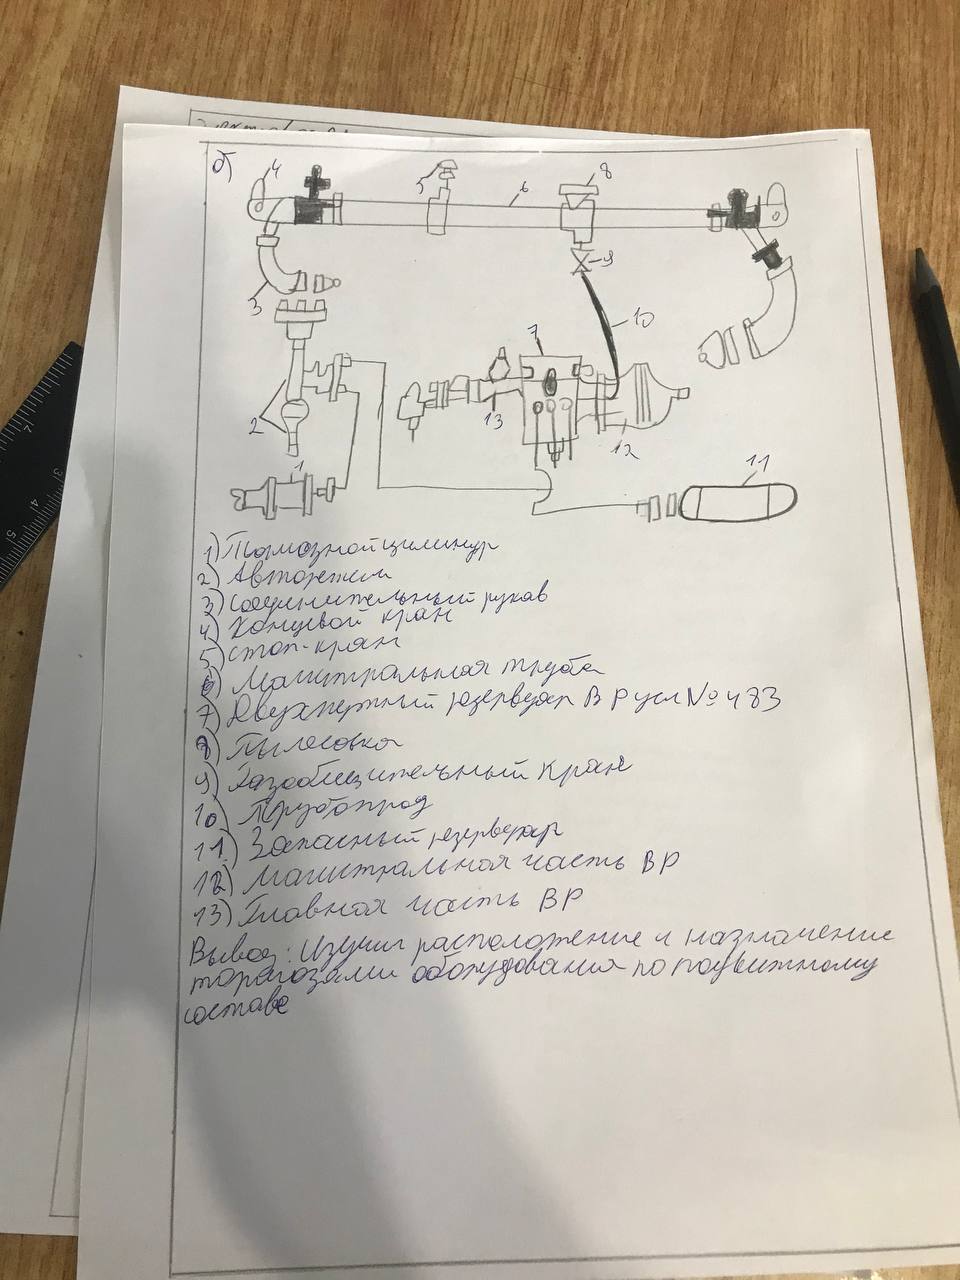 б)
4
5
6
8
9
3
10
7
2
13
12
1
11
1) Тормозной цилиндр
2) Авторежим
3) Соединительный рукав
4) Концевой кран
5) стоп-кран
6) Магистральная труба
7) Двухкамерный резервуар ВР усл № 483
8) Пылеловка
9) Разобщительный кран
10) Трубопрод
11) Запасный резервуар
12) Магистральная часть ВР
13) Главная часть ВР
Вывод: Изучил расположение и назначение
оборудования по подвижному
составе